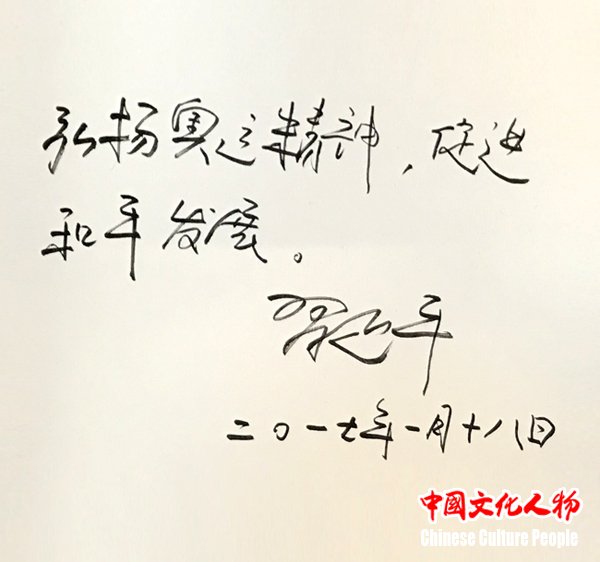 弘扬奥运精神，促进
和平发展。
习近平
二〇一七年一月十八日
中國文化人物
Chinese Culture People